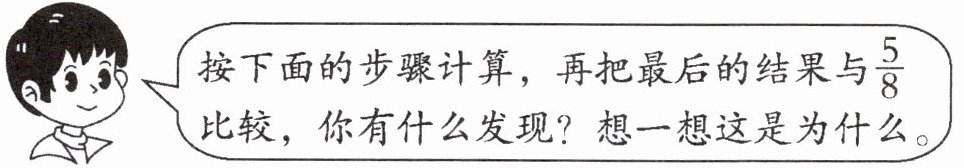 按下面的步骤计算，再把最后的结果与5/8
比较，你有什么发现？想一想这是为什么。